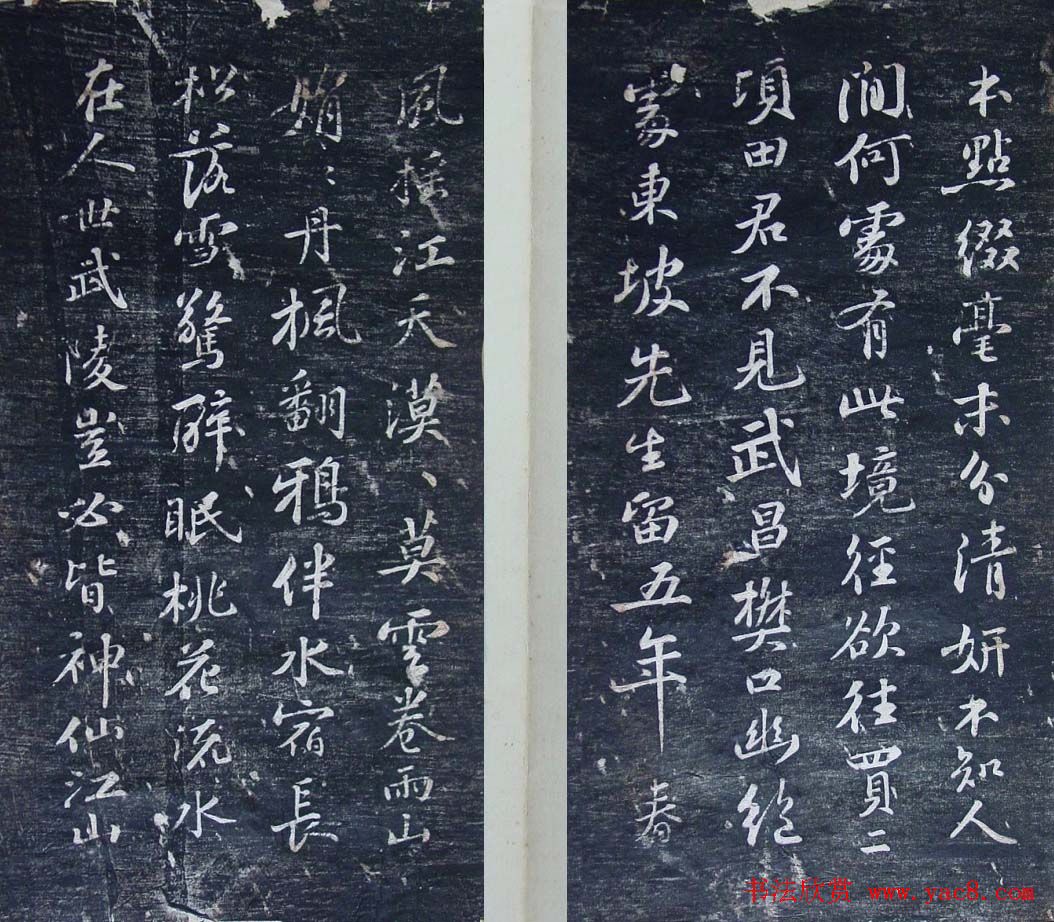 本點綴毫末分清妍不知人
間何處有此境徑欲往買二
頃田君不見武昌樊口幽絕
處東坡先生留五年春
風搖江天漠〻莫雲卷雨山
娟〻丹楓翻鴉伴水宿長
松落雪驚醉眠桃花流水
在人世武陵豈必皆神仙江山
书法欣赏 www.yac8.com